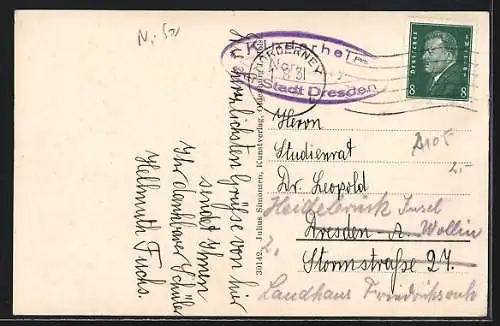 N. 521
Die herzlichsten Grüße von hier
sendet Ihnen
Ihr dankbarer Schüler
Hellmuth Fuchs.
39142, Julius Simonsen, Kunstverlag, Oldenburg
Kinderheim
Stadt Dresden
NORDERNEY
1.8.31
Deutsches Reich
8 8
Herrn
Studienrat
Dr. Leopold
Heidebrück Insel
Dresden - A. Wollin
Stormstraße 27.
Landhaus Friedrichsruh
2,-